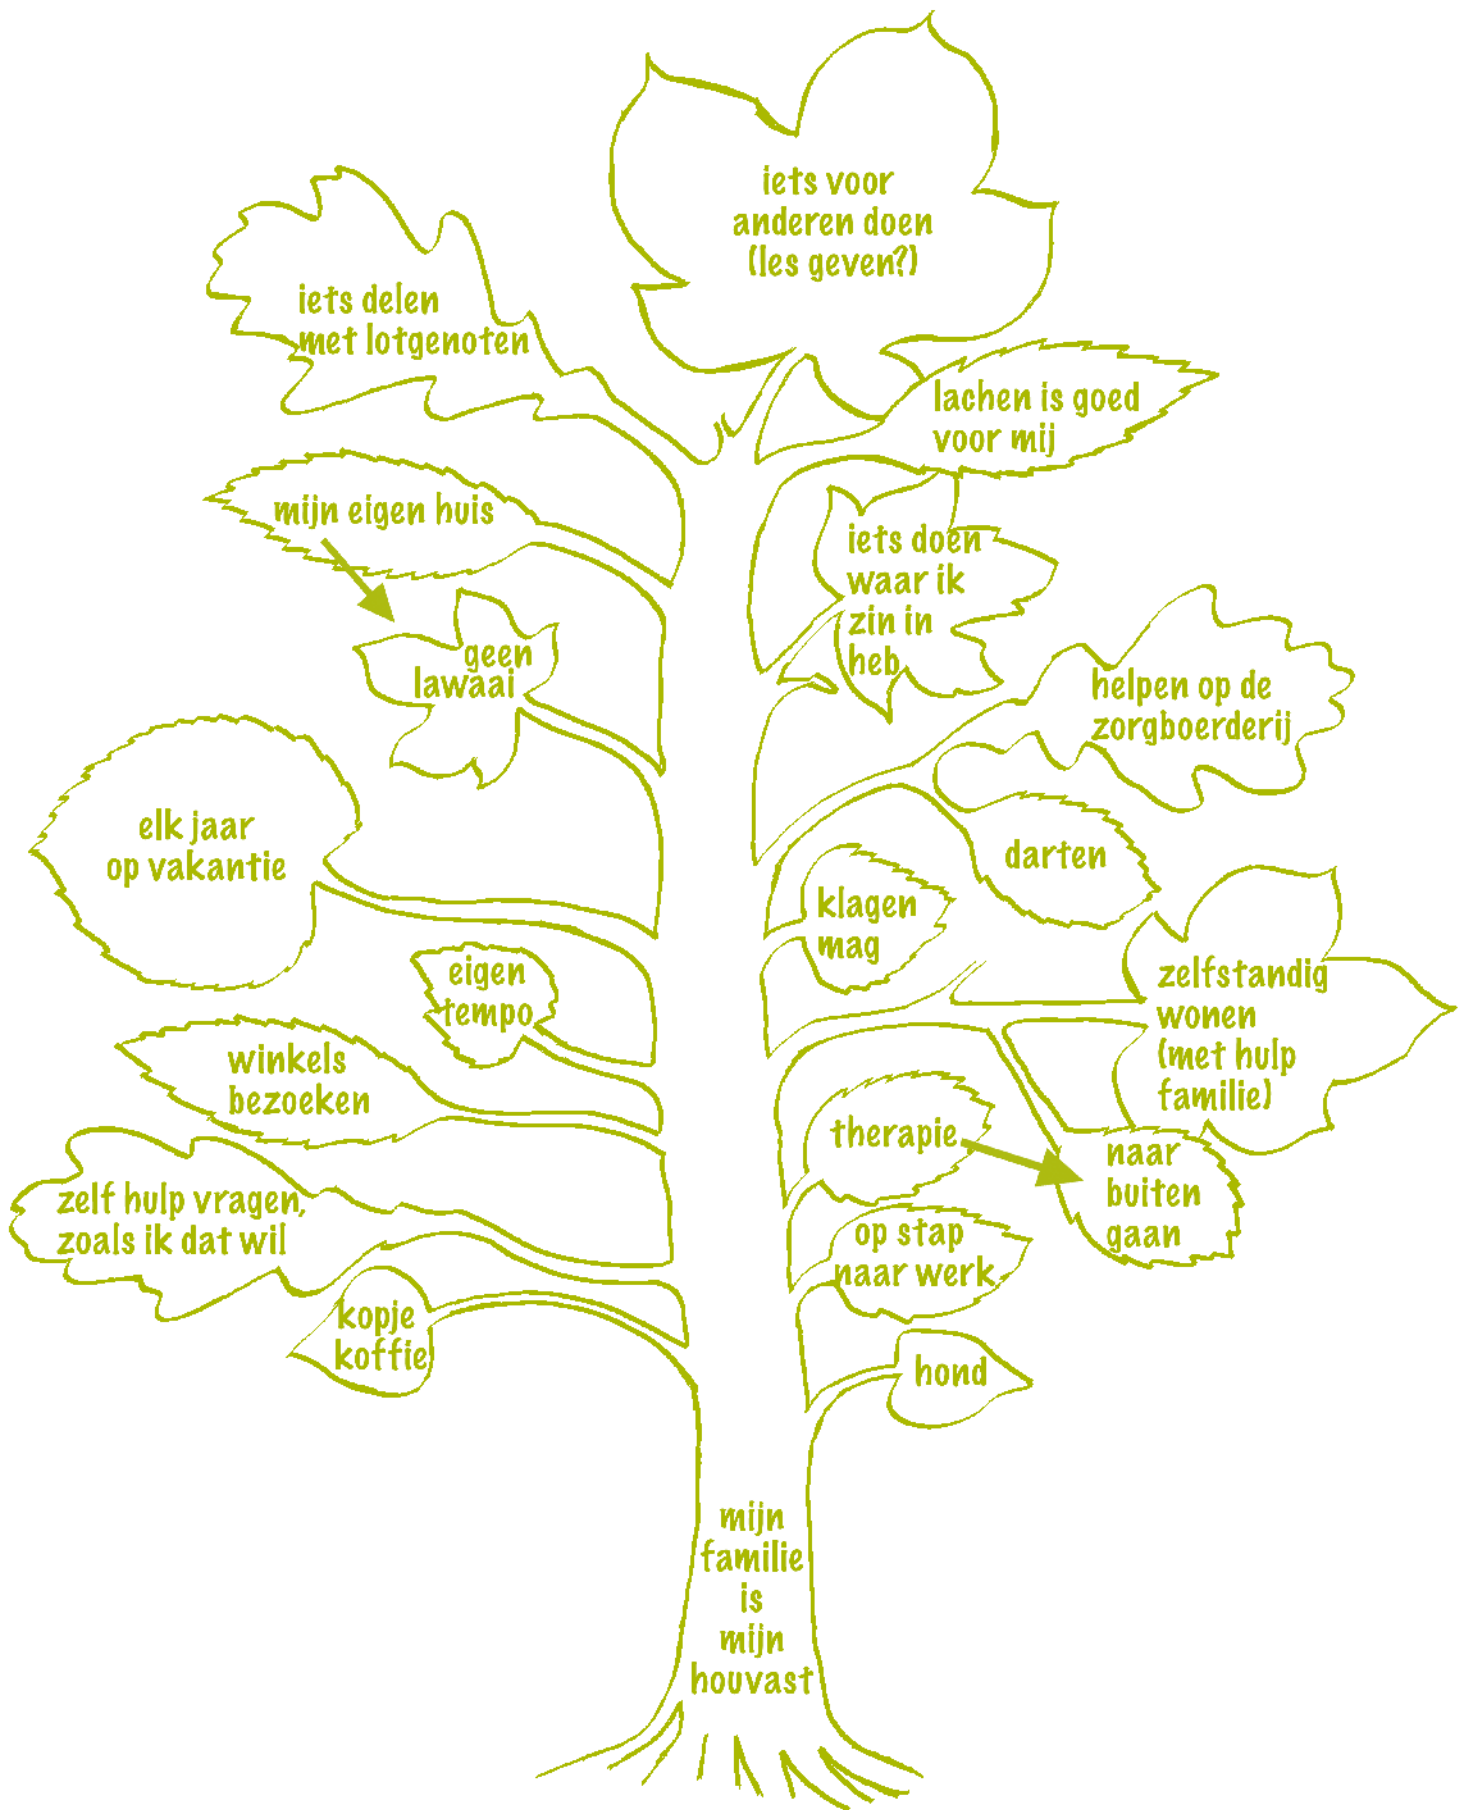 iets voor
anderen doen
(les geven?)
iets delen
met lotgenoten
lachen is goed
voor mij
mijn eigen huis
iets doen
waar ik
zin in
heb
geen
lawaai
helpen op de
zorgboerderij
elk jaar
op vakantie
darten
klagen
mag
eigen
tempo
zelfstandig
wonen
(met hulp
familie)
winkels
bezoeken
therapie
naar
buiten
gaan
zelf hulp vragen,
zoals ik dat wil
op stap
naar werk
kopje
koffie
hond
mijn
familie
is
mijn
houvast